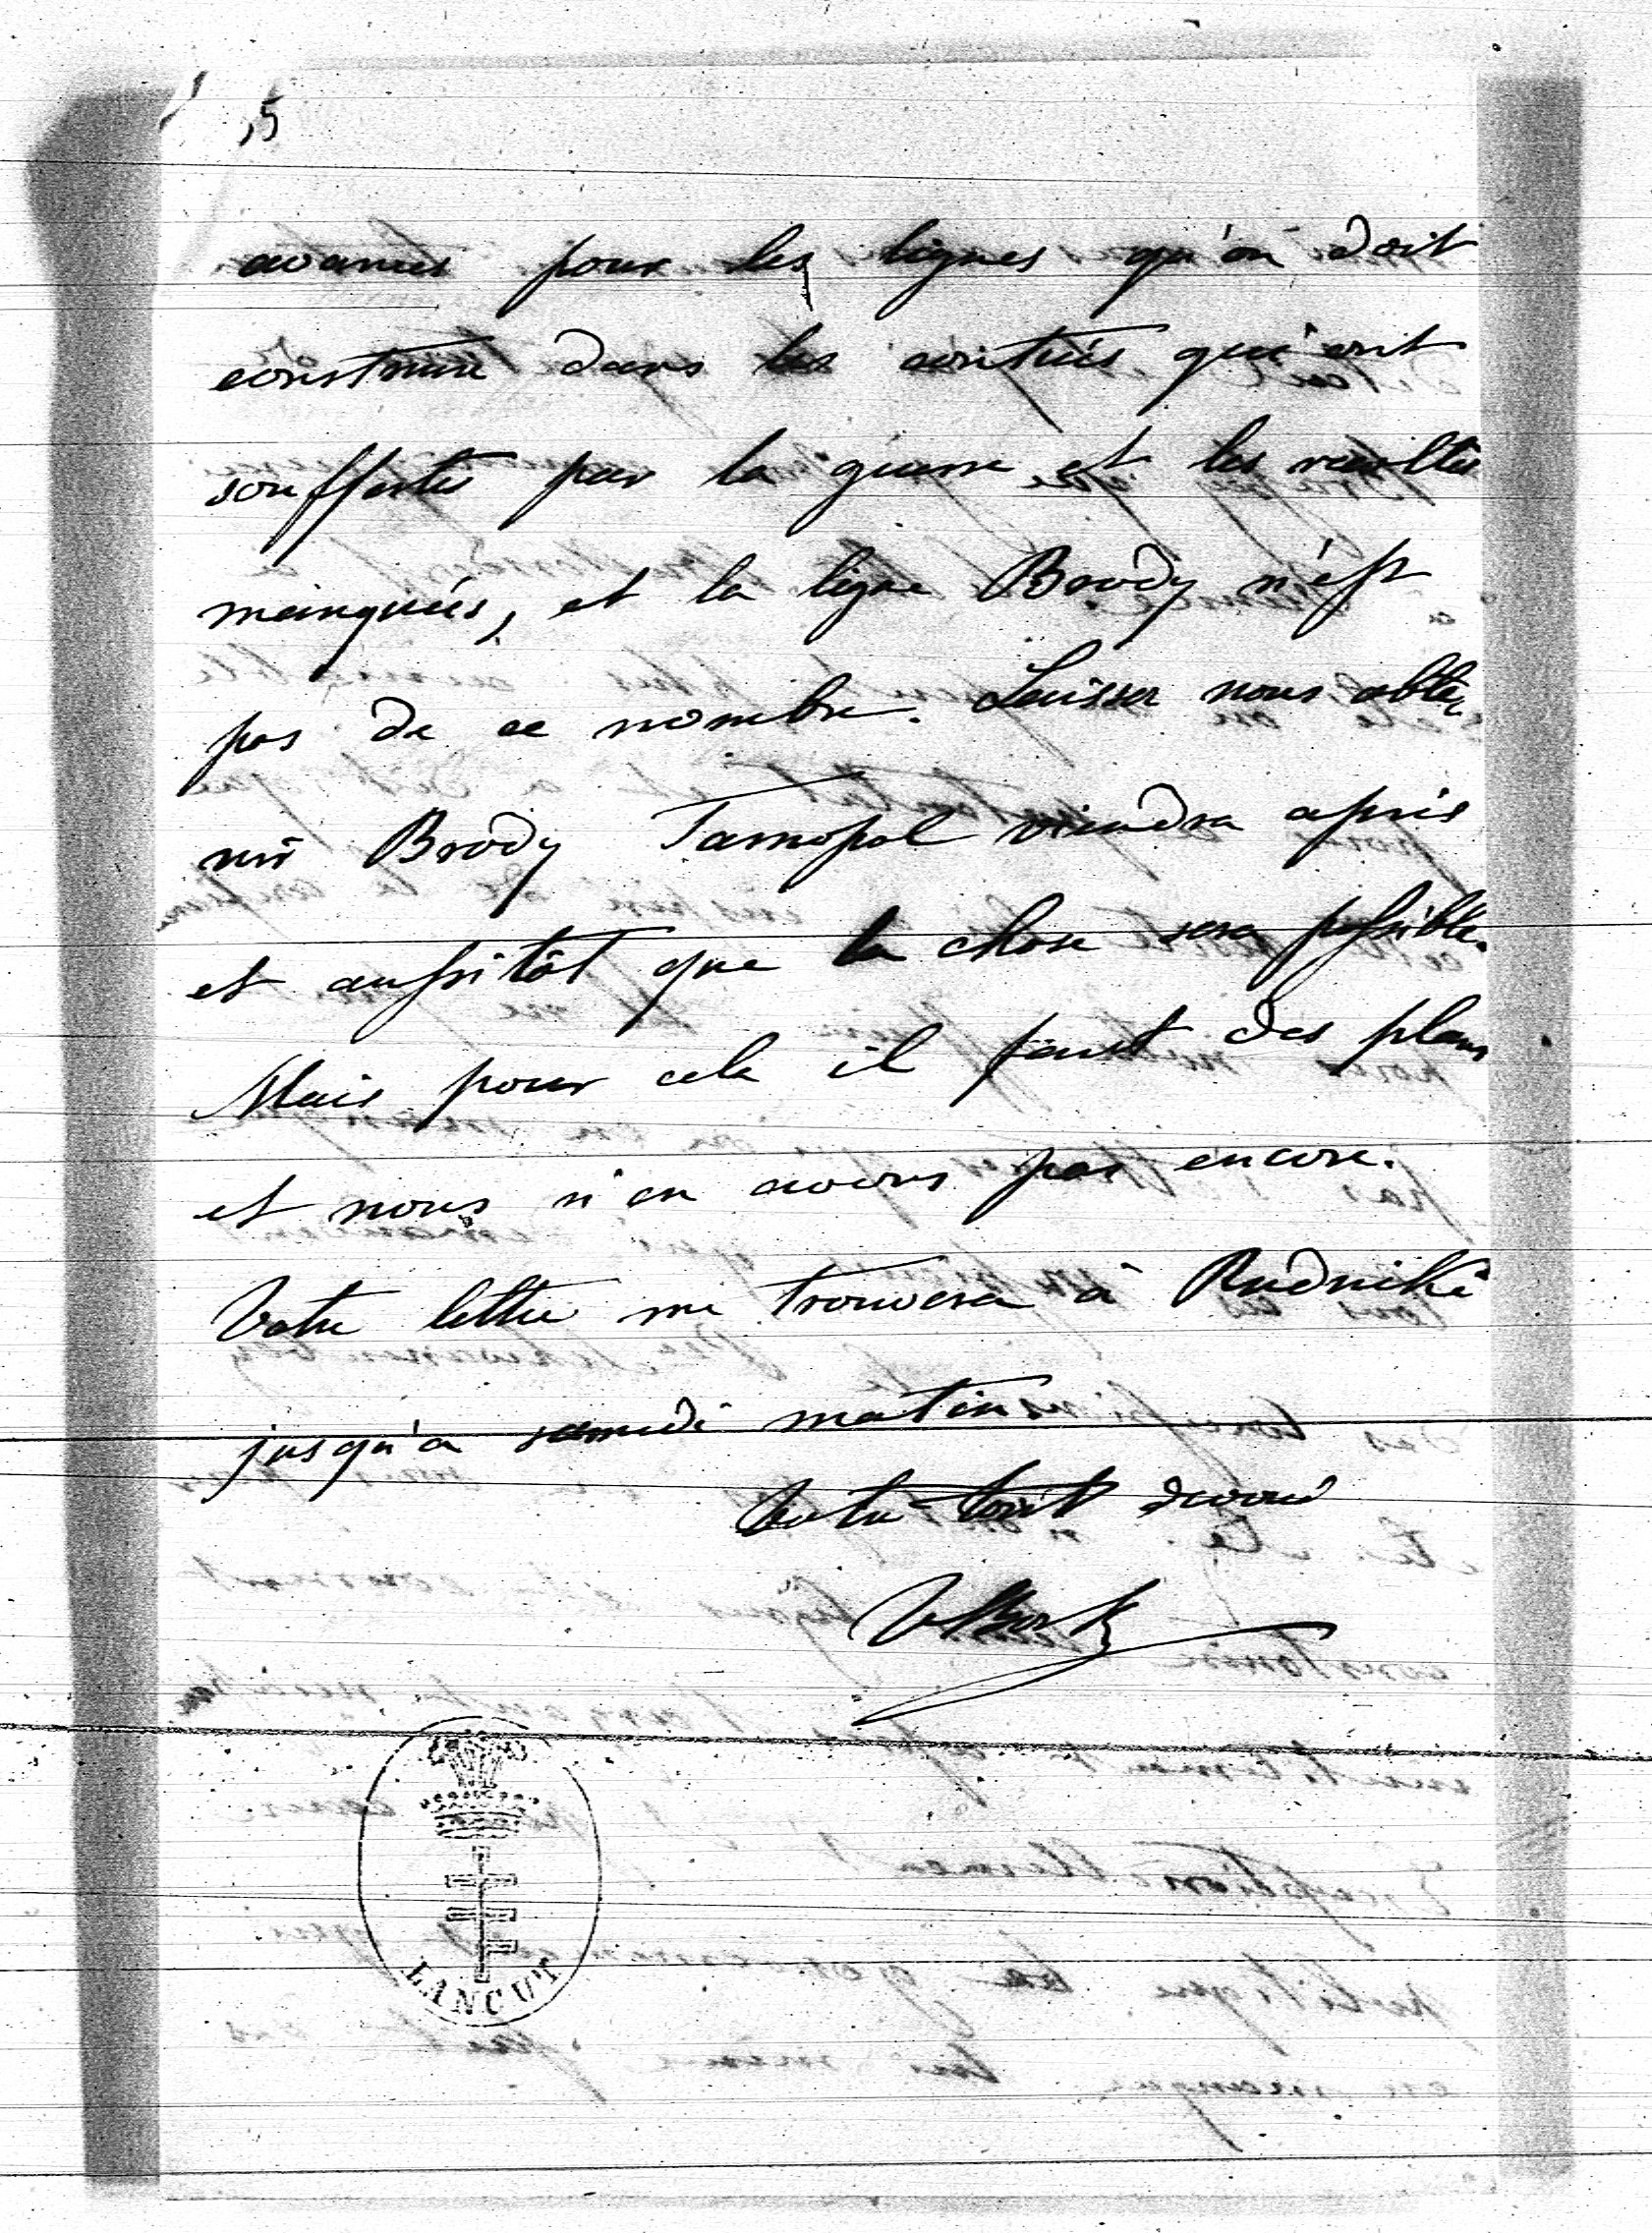 15
avances pour les lignes qu'on doit
construire dans les contrées qui ont
souffertes par la guerre et les récoltes
manquées, et la ligne Brody n'est
pas de ce nombre. Laissez nous obte
nir Brody Tarnopol viendra après
et aussitôt que la chose sera possible.
Mais pour cela il faut des plans
et nous n'en avons pas encore.
Votre lettre me trouvera à Rudniki
jusqu'a samedi matin
Votre tout devoué
LANCUT